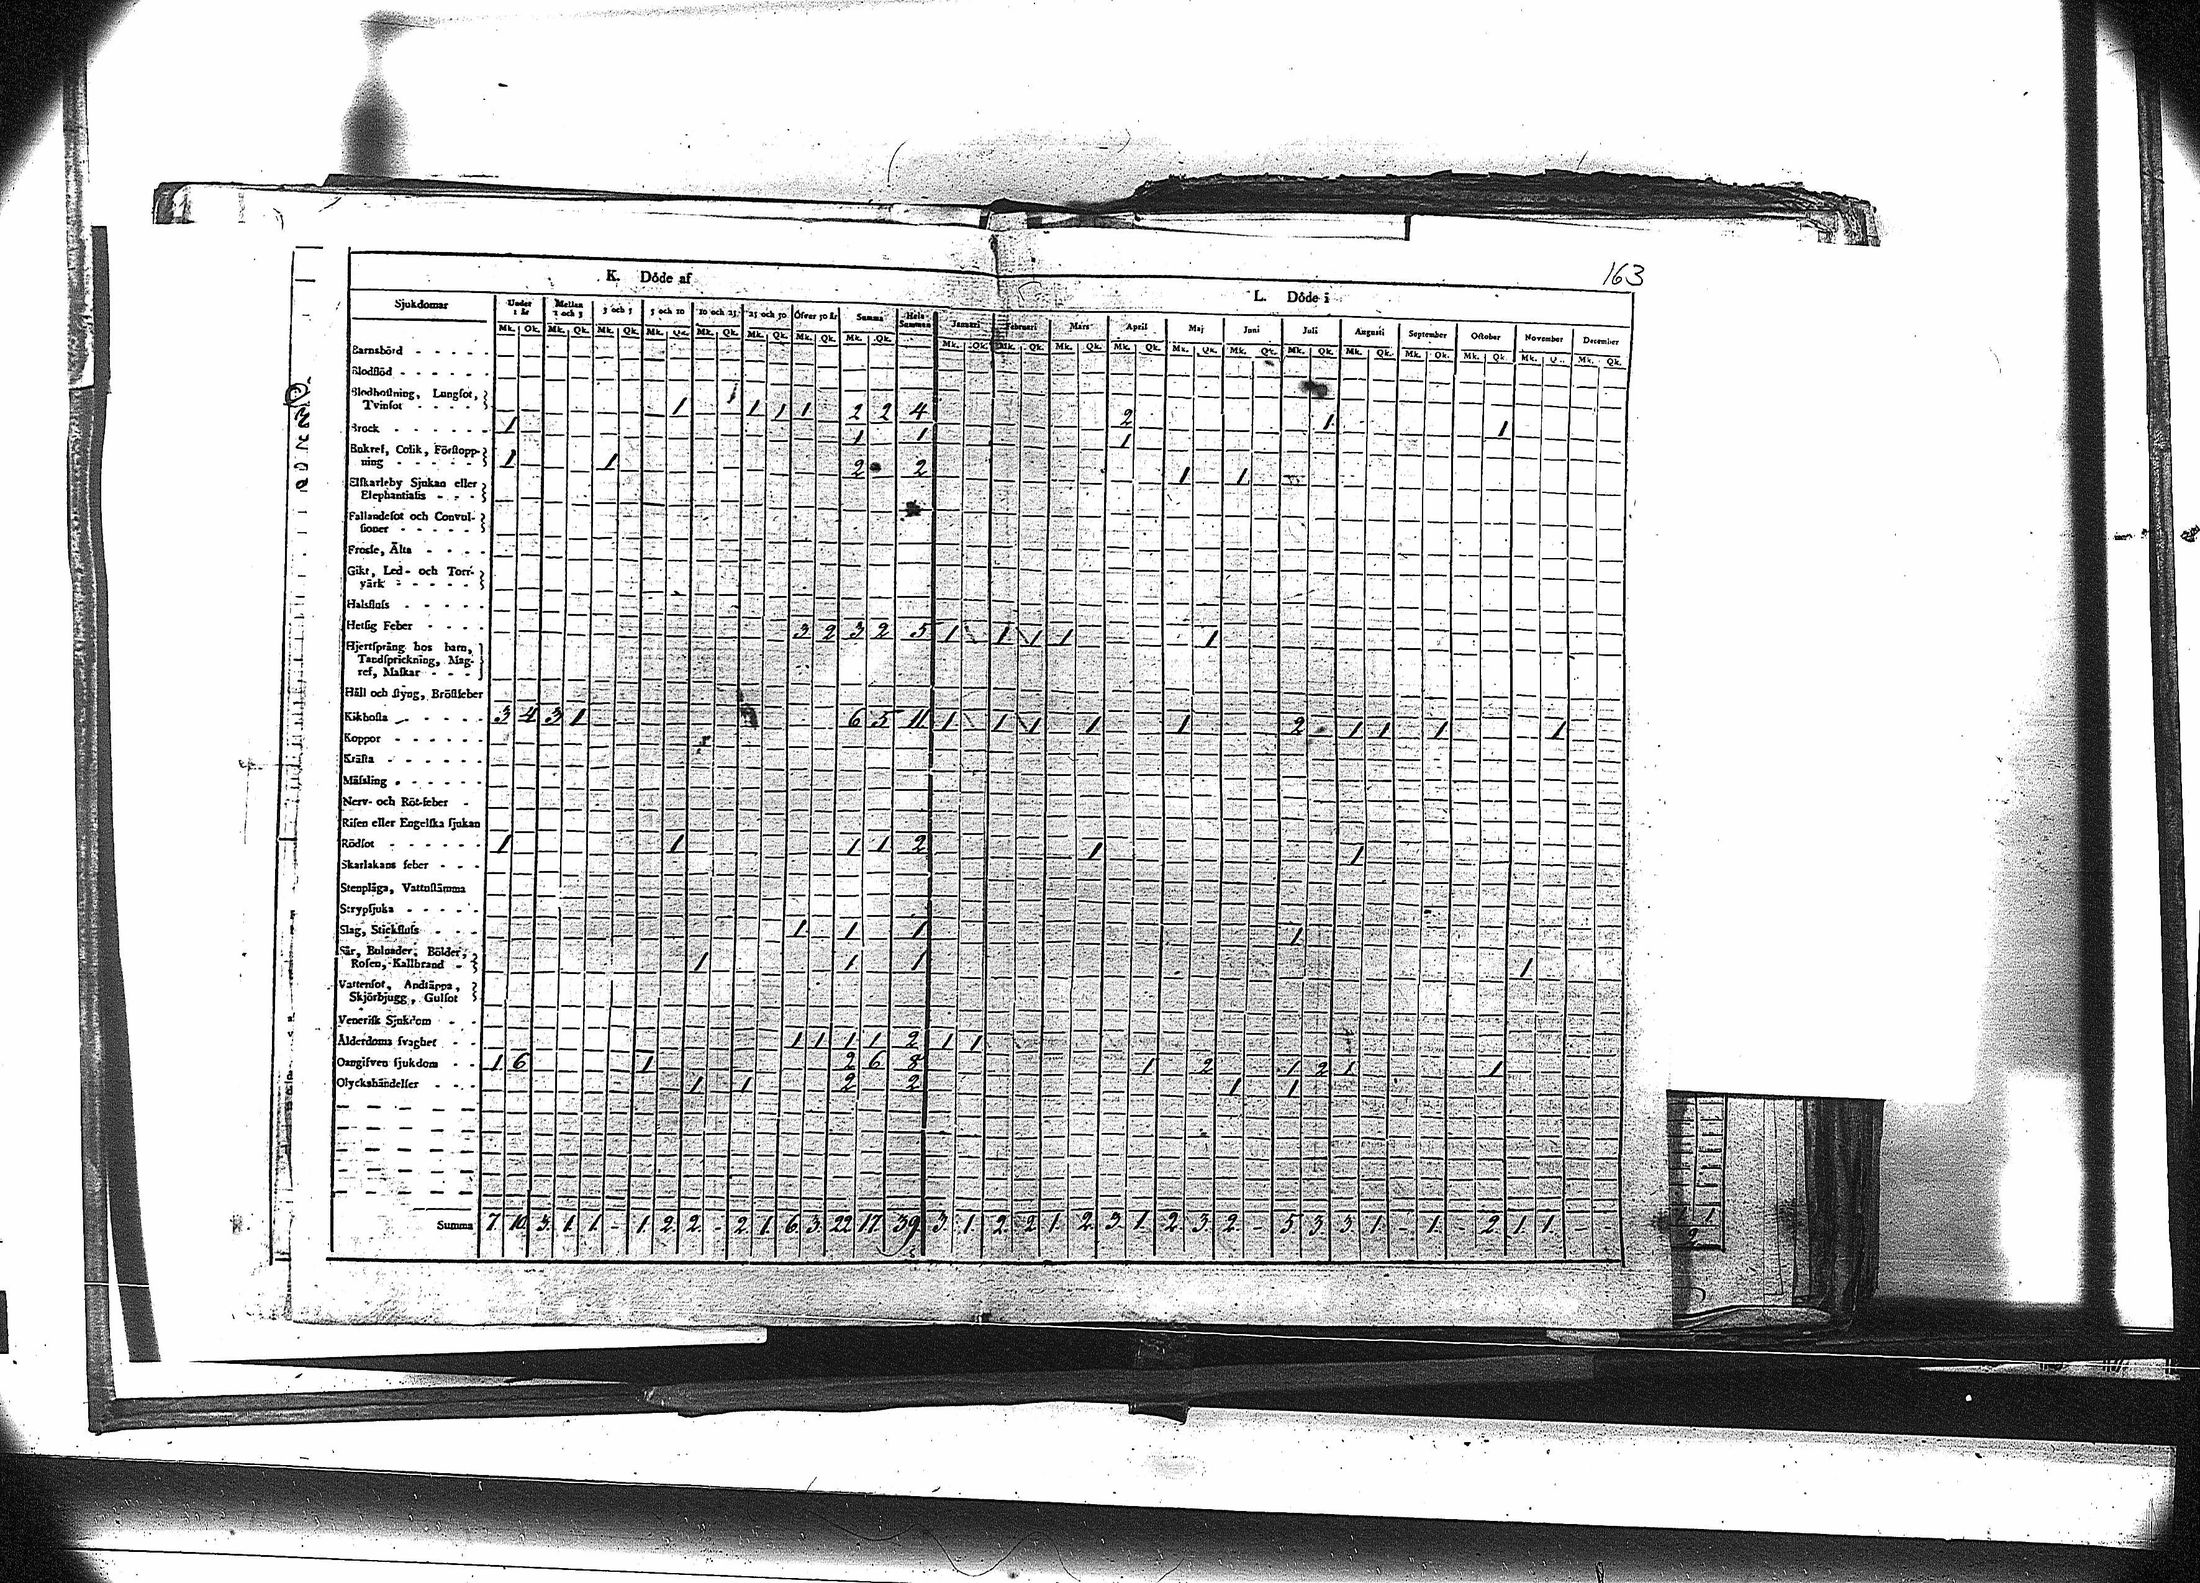 163
K. Döde af
L. Döde i
Sjukdomar Under 1 år Mellan 1 och 3 3 och 5 5 och 10 10 och 25 25 och 50 Öfver 50 år Summa Hela Summan Januari Februari Mars April Maj Juni Juli Augusti September October November December
Mk. Qk. Mk. Qk. Mk. Qk. Mk. Qk. Mk. Qk. Mk. Qk. Mk. Qk. Mk. Qk. Mk. Qk. Mk. Qk. Mk. Qk. Mk. Qk. Mk. Qk. Mk. Qk. Mk. Qk. Mk. Qk. Mk. Qk. Mk. Qk. Mk. Qk. Mk. Qk.
Barnsbörd - - - - -
Blodflöd - - - - -
Blodhoſtning, Lungſot,
Tvinſot - - - - 1 1 1 1 2 2 4 2 1 1
Brock - - - - - 1 1 1 1
Bukref, Colik, Förſtopp-
ning - - - - - 1 1 2 2 1 1
Elfkarleby Sjukan eller
Elephantiaſis - - -
Fallandeſot och Convul-
ſioner - - - - -
Frosſe, Älta - - - -
Gikt, Led- och Torr-
värk - - - - -
Halsfluſs - - - - -
Hetſig Feber - - - - 3 2 3 2 5 1 1 1 1 1
Hjertſprång hos barn,
Tandſprickning, Mag-
ref, Maſkar - - -
Håll och ſtyng, Bröſtfeber
Kikhoſta - - - - - 3 4 3 1 6 5 11 1 1 1 1 1 2 1 1 1 1
Koppor - - - - -
Kräfta - - - - -
Mäſsling - - - - -
Nerv- och Röt-feber -
Riſen eller Engelſka ſjukan
Rödſot - - - - - 1 1 1 1 2 1 1
Skarlakans feber - - -
Stenplåga, Vattuſtämma
Strypſjuka - - - - -
Slag, Stickfluſs - - - 1 1 1 1
Sår, Bulnader, Bölder,
Roſen, Kallbrand - 1 1 1 1
Vattenſot, Andtäppa,
Skjörbjugg, Gulſot
Veneriſk Sjukdom - -
Ålderdoms ſvaghet - - 1 1 1 1 2 1 1
Oangifven ſjukdom - - 1 6 1 2 6 8 1 2 1 2 1 1
Olyckshändelſer - - - 1 1 2 2 1 1
Summa 7. 10. 3. 1. 1. - 1. 2. 2. - 2. 1. 6. 3. 22 17 39 3. 1. 2. 2. 1. 2. 3. 1. 2. 3. 2. - 5. 3. 3. 1. - 1. - 2. 1. 1. - -